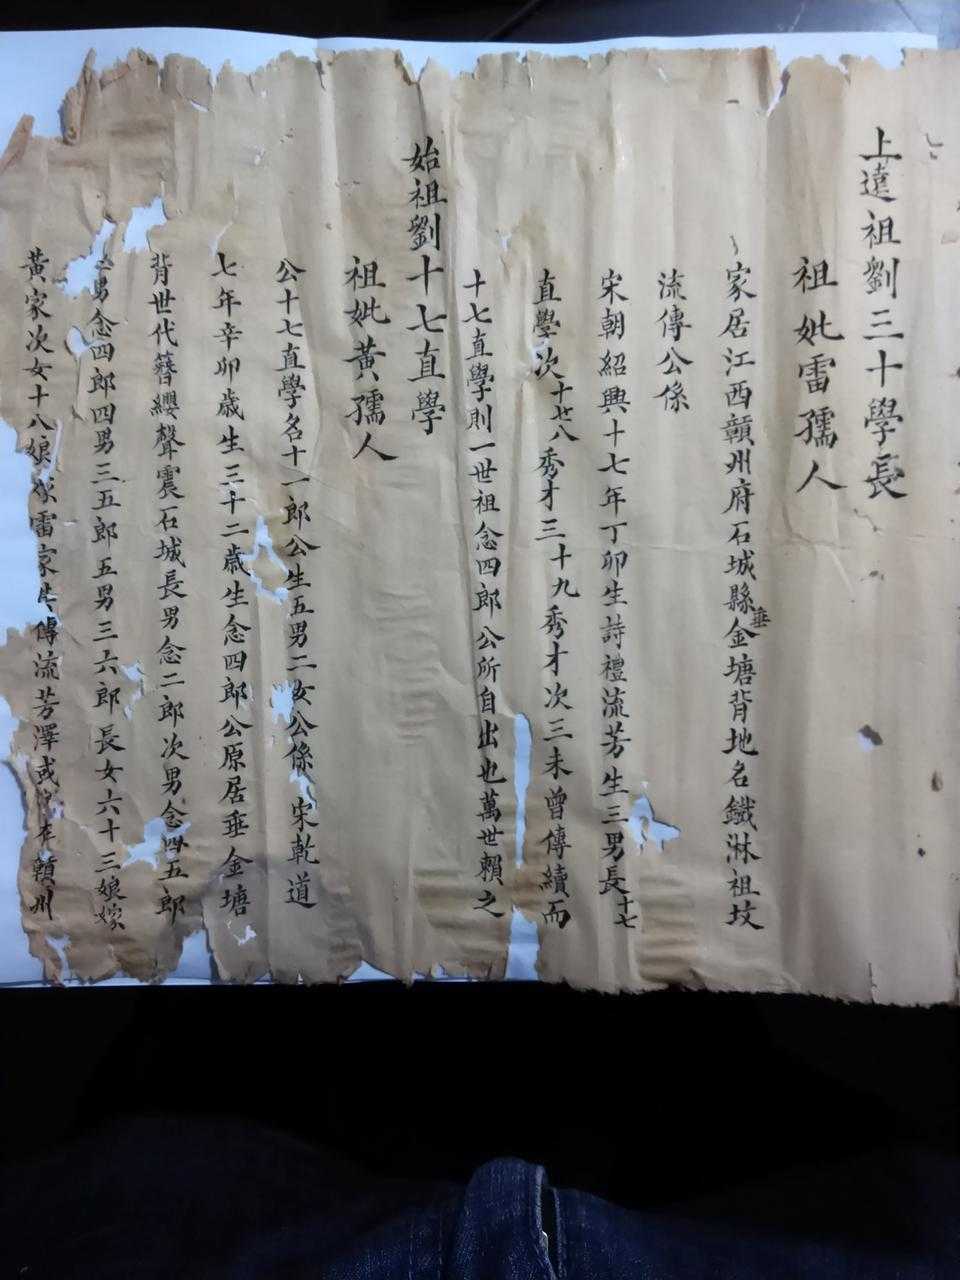 上遠祖劉三十學長
祖妣雷孺人
家居江西贛州府石城縣垂金塘背地名鐵淋祖坟
流傳公係
宋朝紹興十七年丁卯生詩禮流芳生三男長十七
直學次十七八秀才三十九秀才次三未曾傳續而
十七直學則一世祖念四郎公所自出也萬世賴之
始祖劉十七直學
祖妣黃孺人
公十七直學名十一郎公生五男二女公係宋乾道
七年辛卯歲生三十二歲生念四郎公原居垂金塘
背世代簪纓聲震石城長男念二郎次男念四五郎
男念四郎四男三五郎五男三六郎長女六十三娘嫁
黃家次女十八娘嫁雷家傳流芳澤或在贛州